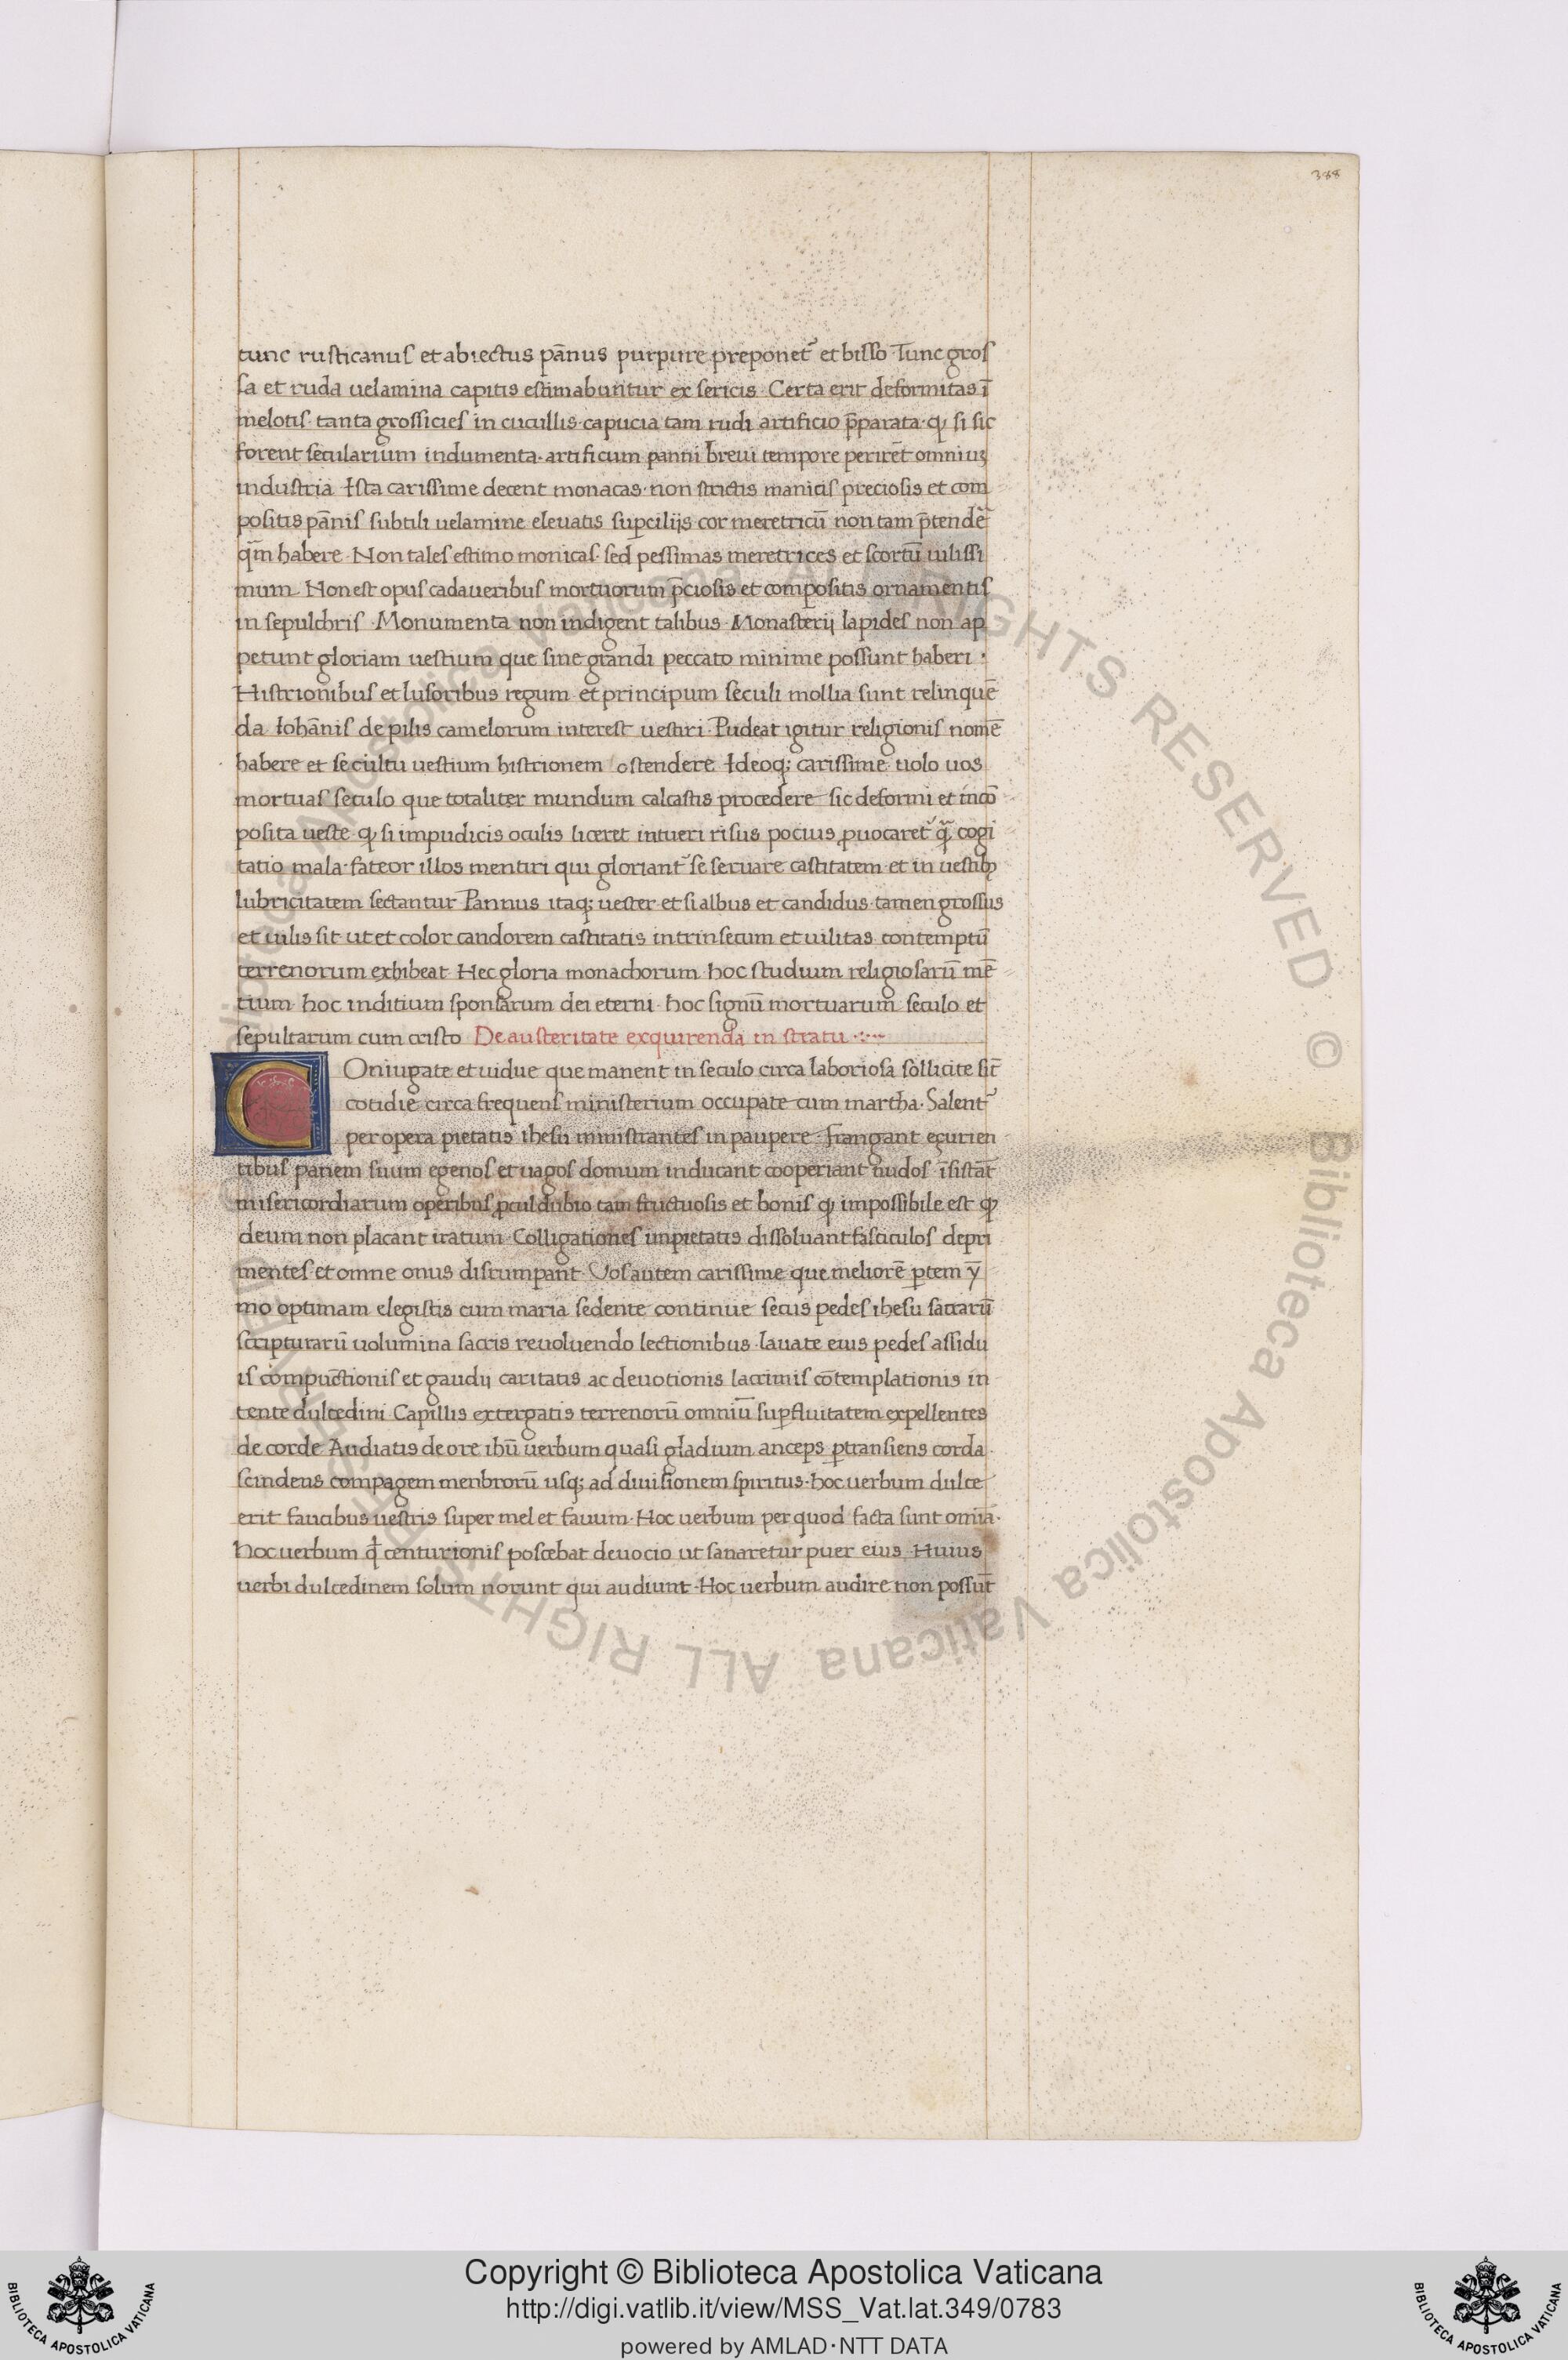 388
tunc rusticanus et abiectus pa̅nus purpure preponet᷑ et bisso Tunc gros
sa et ruda uelamina capitis estimabuntur ex sericis · Certa erit deformitas i̅
melotis · tanta grossicies in cucullis · capucia tam rudi artificio p̅parata · ꝙ si sic
forent secularium indumenta · artificum panni breui tempore periret̅ omniuꝫ
industria Ista carissime decent monacas · non strictis manicis preciosis et com
positis pa̅nis subtili uelamine eleuatis suꝑcilijs cor meretricu̅ non tam p̅tende̅
q̅m habere · Non tales estimo monicas · sed pessimas meretrices et scortu̅ uilissi
mum Non est opus cadaueribus mortuorum p̅ciosis et compositis ornamentis
in sepulchris · Monumenta non indigent talibus · Monasterij lapides non ap
petunt gloriam uestium que sine grandi peccato minime possunt haberi ·
Histrionibus et lusoribus regum et principum seculi mollia sunt relinque̅
da Ioha̅nis de pilis camelorum interest uestiri · Pudeat igitur religionis nome̅
habere et se cultu uestium histrionem ostendere Ideoq; carissime uolo uos
mortuas seculo que totaliter mundum calcastis procedere sic deformi et inco̅
posita ueste · ꝙ si impudicis oculis liceret intueri risus pocius ꝓuocaret᷑ q̅ꝫ cogi
tatio mala · fateor illos mentiri qui gloriant᷑ se seruare castitatem et in uestibꝫ
lubricitatem sectantur Pannus itaq; uester et si albus et candidus · tamen grossus
et uilis sit ut et color candorem castitatis intrinsecum et uilitas contemptu̅
terrenorum exhibeat · Hec gloria monachorum hoc studium religiosaru̅ me̅
tium hoc inditium sponsarum dei eterni · hoc signu̅ mortuarum seculo et
sepultarum cum cristo De austeritate exquirenda in stratu
COniugate et uidue que manent in seculo circa laboriosa sollicite sit̅
cotidie circa frequens ministerium occupate cum martha · Salent᷑
per opera pietatis ihesu ministrantes in paupere · Frangant eçurien
tibus panem suum egenos et uagos domum inducant cooperiant nudos i̅sista̅t
misericordiarum operibus ꝓcul dubio tam fructuosis et bonis ꝙ impossibile est ꝙ
deum non placant iratum · Colligationes impietatis dissoluant fasciculos depri
mentes et omne onus disrumpant · Vos autem carissime que meliore̅ ꝑtem y̅
mo optimam elegistis cum maria sedente continue secus pedes ihesu sacraru̅
scripturaru̅ uolumina sacris reuoluendo lectionibus · lauate eius pedes assidu
is compu̅ctionis et gaudij caritatis ac deuotionis lacrimis co̅templationis in
tente dulcedini · Capillis extergatis terrenoru̅ omniu̅ suꝑfluitatem expellentes
de corde Audiatis de ore ihu̅ uerbum quasi gladium anceps ꝑtransiens corda ·
scindens compagem menbroru̅ usq; ad diuisionem spiritus · hoc uerbum dulce
erit faucibus uestris super mel et fauum · Hoc uerbum per quod facta sunt omia̅ ·
hoc uerbum qd̅ centurionis poscebat deuocio ut sanaretur puer eius · Huius
uerbi dulcedinem solum norunt qui audiunt · Hoc uerbum audire non possut̅
© Biblioteca Apostolica Vaticana ALL RIGHTS RESERVED
BIBLIOTECA APOSTOLICA VATICANA
Copyright © Biblioteca Apostolica Vaticana
http://digi.vatlib.it/view/MSS_Vat.lat.349/0783
powered by AMLAD·NTT DATA
BIBLIOTECA APOSTOLICA VATICANA